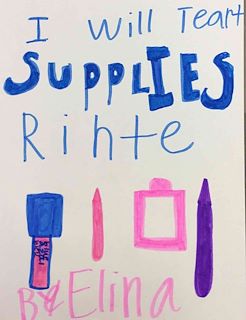 I Will Teart
SUPPLIES
Rihte
By Elina